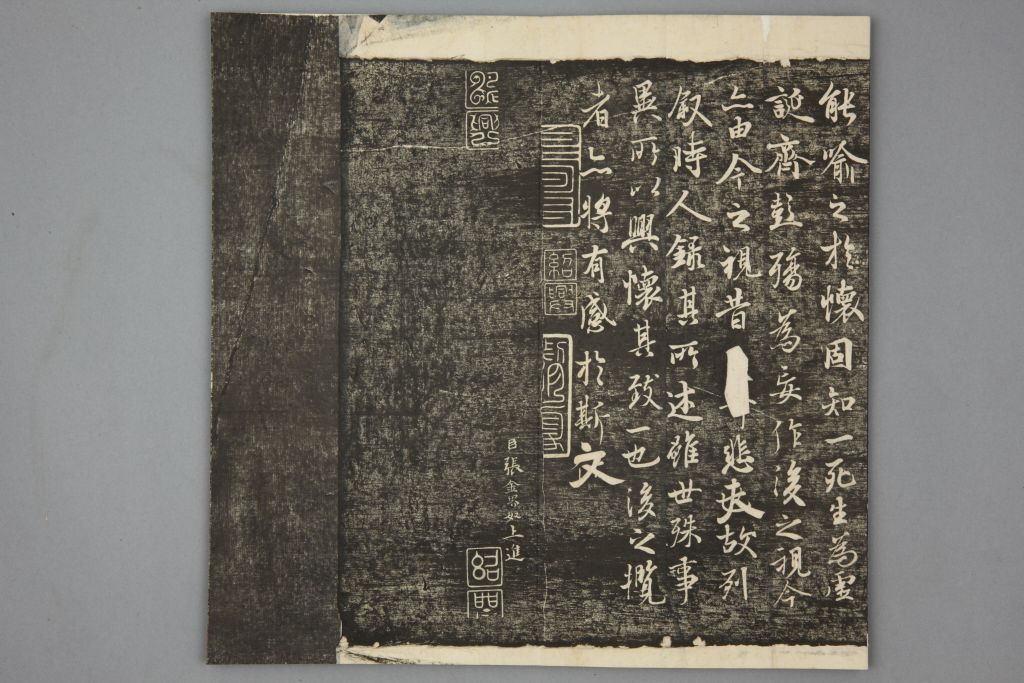 能喻之於懷固知一死生為虛
誕齊彭殤為妄作後之視今
亦由今之視昔悲夫故列
敘時人錄其所述雖世殊事
異所以興懷其致一也後之攬
者亦將有感於斯文
紹興
臣張金界奴上進